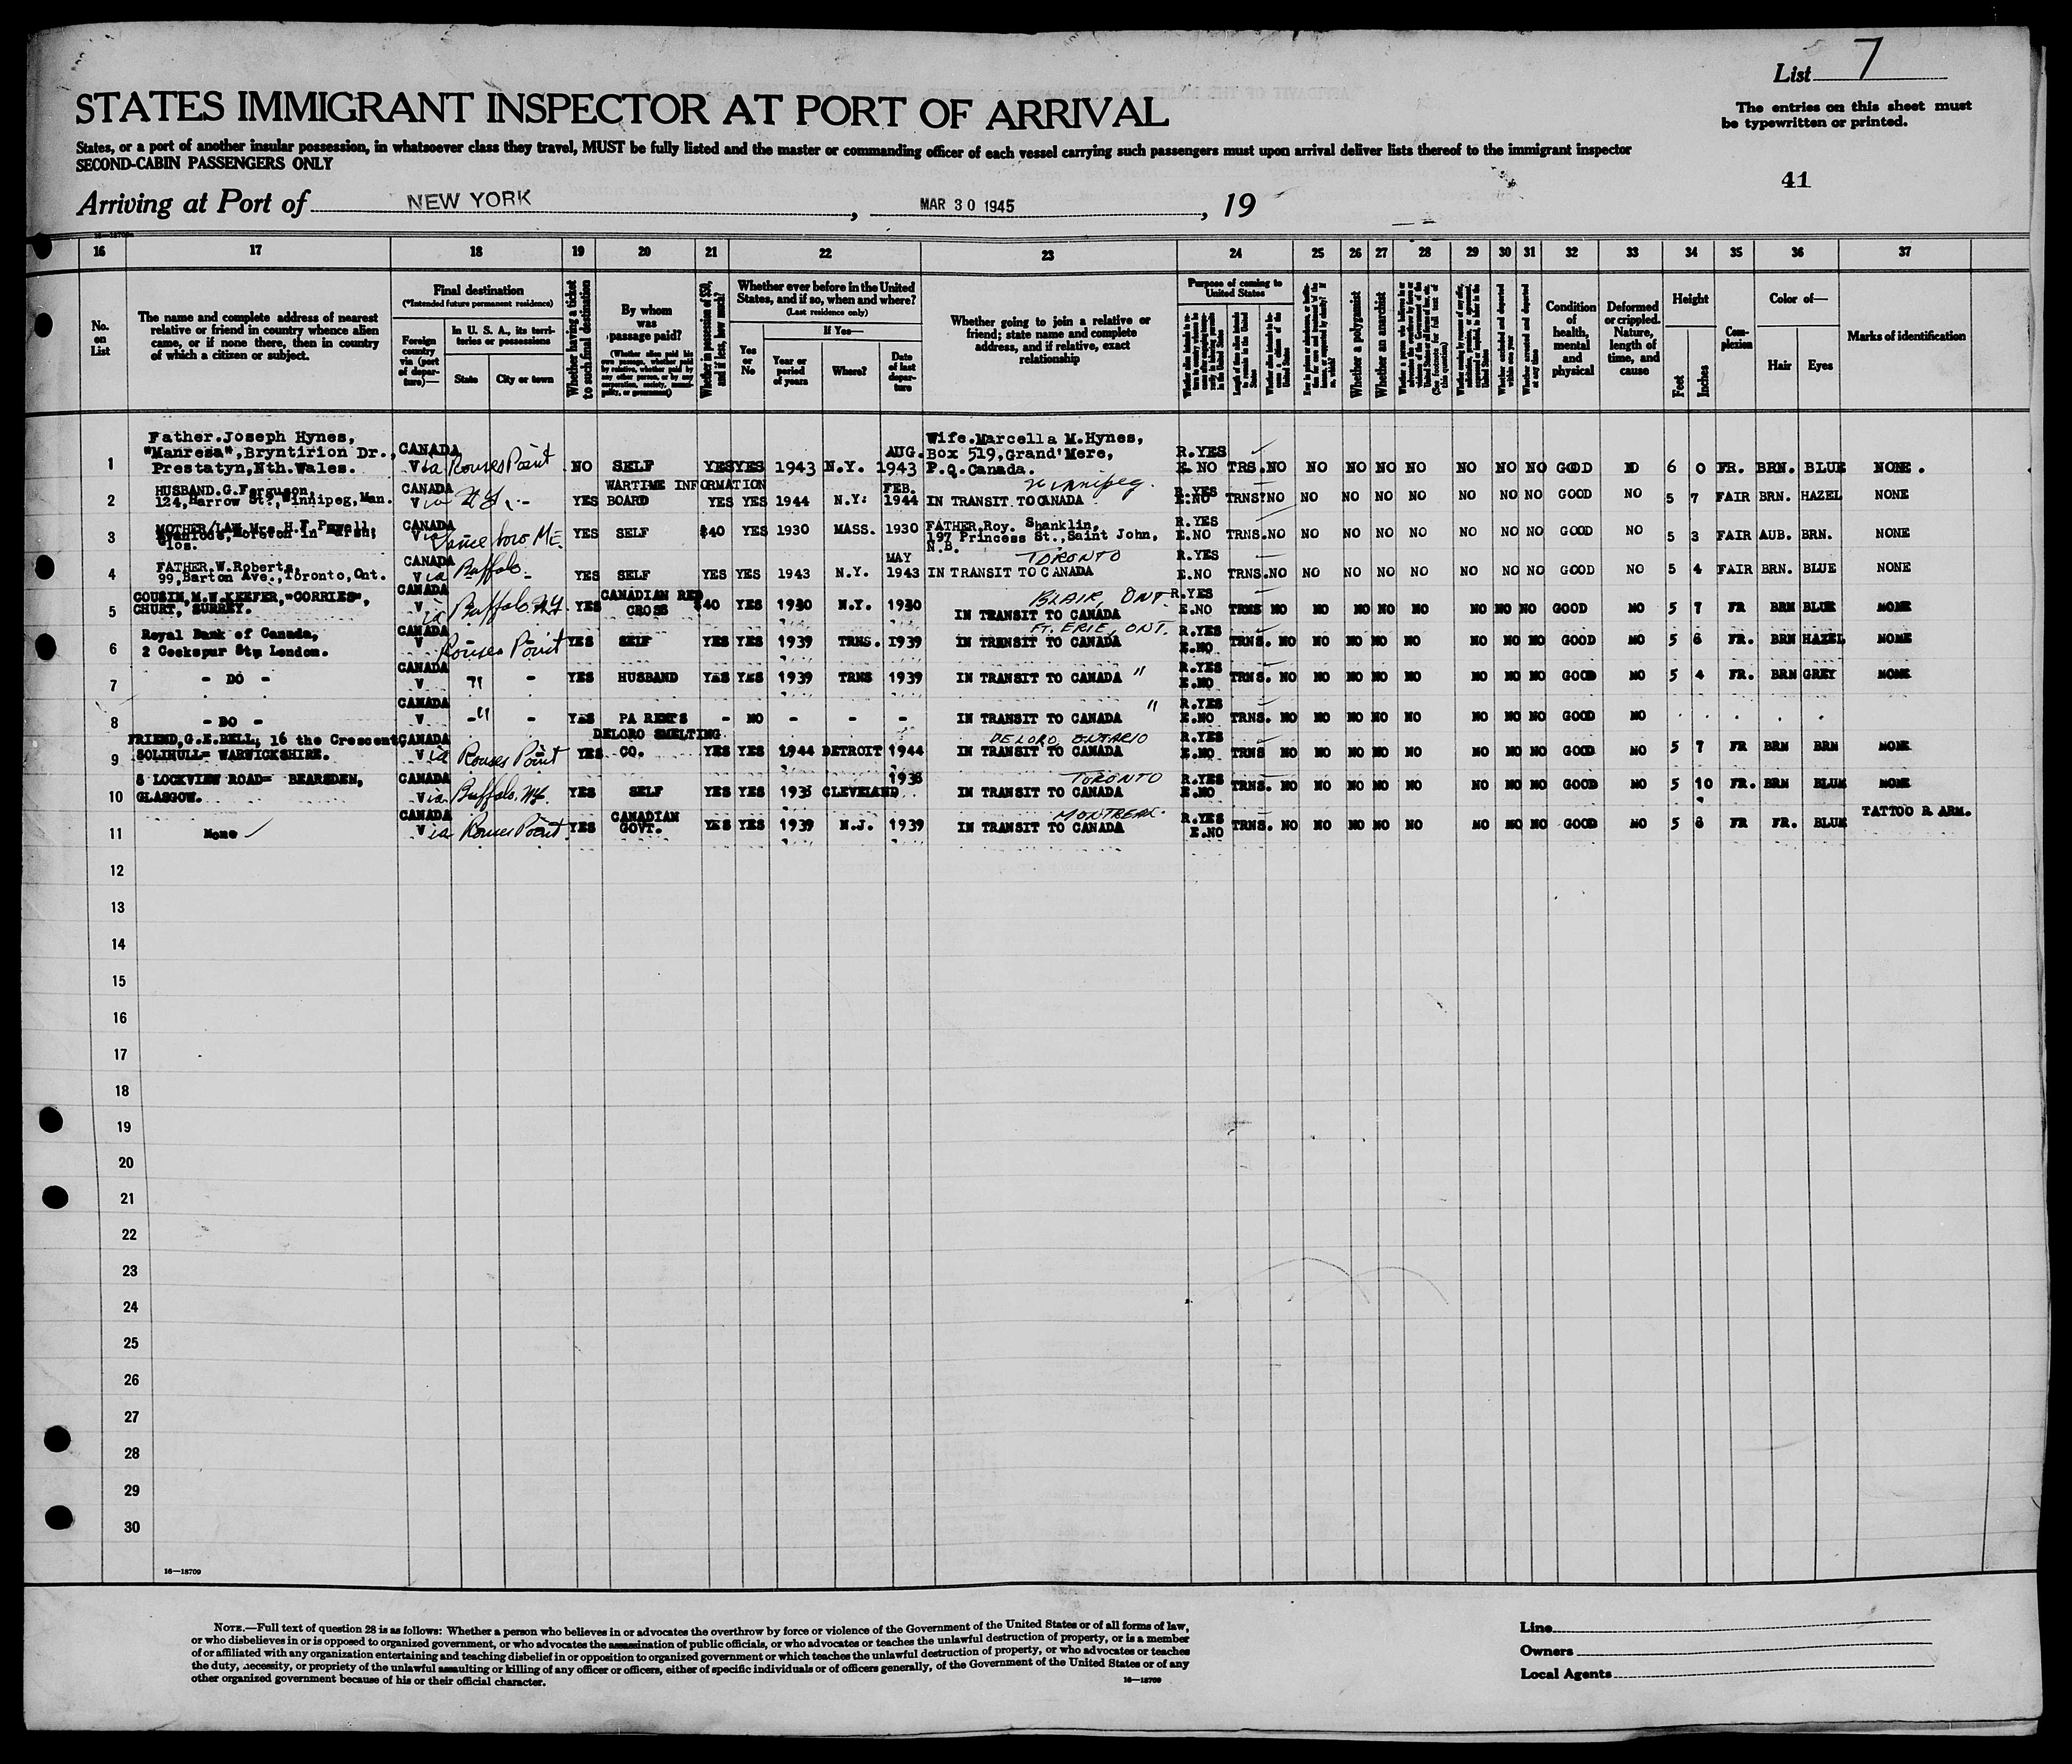 List 7
STATES IMMIGRANT INSPECTOR AT PORT OF ARRIVAL
The entries on this sheet must
be typewritten or printed.
States, or a port of another insular possession, in whatsoever class they travel, MUST be fully listed and the master or commanding officer of each vessel carrying such passengers must upon arrival deliver lists thereof to the immigrant inspector
SECOND-CABIN PASSENGERS ONLY
41
Arriving at Port of NEW YORK, MAR 30 1945, 19
16 17 18 19 20 21 22 23 24 25 26 27 28 29 30 31 32 33 34 35 36 37
No. on List
The name and complete address of nearest
relative or friend in country whence alien
came, or if none there, then in country
of which a citizen or subject.
Final destination
(*Intended future permanent residence)
Foreign country via (port of departure)—
In U. S. A., its territories or possessions
State
City or town
Whether having a ticket to such final destination
By whom was passage paid?
Whether in possession of $50, and if less, how much?
Whether ever before in the United States, and if so, when and where?
(Last residence only)
Yes or No
If Yes—
Year or period of years
Where?
Date of last departure
Whether going to join a relative or
friend; state name and complete
address, and if relative, exact
relationship
Purpose of coming to United States
Whether a polygamist
Whether an anarchist
Condition of health, mental and physical
Deformed or crippled. Nature, length of time, and cause
Height
Feet
Inches
Complexion
Color of—
Hair
Eyes
Marks of identification
1 Father.Joseph Hynes, "Manresa", Bryntirion Dr., Prestatyn,Nth.Wales. CANADA Via Rouses Point NO SELF YES YES 1943 N.Y. AUG. 1943 Wife.Marcella M.Hynes, Box 519,Grand'Mere, P.Q.Canada. R.YES E.NO TRS. NO NO NO NO NO NO NO NO GOOD NO 6 0 FR. BRN. BLUE NONE.
2 HUSBAND.G.Ferguson, 124,Harrow St., Winnipeg,Man. CANADA Via YES WARTIME INFORMATION BOARD YES YES 1944 N.Y. FEB. 1944 Winnipeg. IN TRANSIT TO CANADA R.YES E.NO TRNS. NO NO NO NO NO NO NO NO GOOD NO 5 7 FAIR BRN. HAZEL NONE
3 MOTHER/LAW.Mrs.H.F.Powell, Moreton in Marsh, Glos. CANADA Via Vanceboro ME. YES SELF $40 YES 1930 MASS. 1930 FATHER.Roy. Shanklin, 197 Princess St.,Saint John, N.B. R.YES E.NO TRNS. NO NO NO NO NO NO NO NO GOOD NO 5 3 FAIR AUB. BRN. NONE
4 FATHER.W.Roberts, 99,Barton Ave.,Toronto,Ont. CANADA Via Buffalo YES SELF YES YES 1943 N.Y. MAY 1943 TORONTO IN TRANSIT TO CANADA R.YES E.NO TRNS. NO NO NO NO NO NO NO NO GOOD NO 5 4 FAIR BRN. BLUE NONE
5 COUSIN,M.W.KEEFER,"CORRIES", CHURT, SURREY. CANADA Via Buffalo, NY. YES CANADIAN RED CROSS $40 YES 1930 N.Y. 1930 BLAIR, ONT. IN TRANSIT TO CANADA R.YES E.NO TRNS NO NO NO NO NO NO NO NO GOOD NO 5 7 FR BRN BLUE NONE
6 Royal Bank of Canada, 2 Cockspur St. London. CANADA V Rouses Point YES SELF YES YES 1939 TRNS. 1939 FT. ERIE, ONT. IN TRANSIT TO CANADA R.YES E.NO TRNS. NO NO NO NO NO NO NO NO GOOD NO 5 8 FR. BRN HAZEL NONE
7 - DO - CANADA V " YES HUSBAND YES YES 1939 TRNS 1939 IN TRANSIT TO CANADA " R.YES E.NO TRNS. NO NO NO NO NO NO NO NO GOOD NO 5 4 FR. BRN GREY NONE
8 - DO - CANADA V - " - YES PARENTS - NO - - - IN TRANSIT TO CANADA " R.YES E.NO TRNS. NO NO NO NO NO NO NO NO GOOD NO . . . . .
9 FRIEND,G.E.BELL, 16 the Crescent SOLIHULL= WARWICKSHIRE. CANADA Via Rouses Point YES DELORO SMELTING CO. YES YES 1944 DETROIT 1944 DELORO, ONTARIO IN TRANSIT TO CANADA R.YES E.NO TRNS NO NO NO NO NO NO NO NO GOOD NO 5 7 FR BRN BRN NONE
10 8 LOCKVIEW ROAD= BEARSDEN, GLASGOW. CANADA Via Buffalo, NY. YES SELF YES YES 1938 CLEVELAND 1938 TORONTO IN TRANSIT TO CANADA R.YES E.NO TRNS. NO NO NO NO NO NO NO NO GOOD NO 5 10 FR. BRN BLUE NONE
11 None CANADA Via Rouses Point. YES CANADIAN GOVT. YES YES 1939 N.J. 1939 MONTREAL. IN TRANSIT TO CANADA R.YES E.NO TRNS. NO NO NO NO NO NO NO NO GOOD NO 5 8 FR FR. BLUE TATTOO R ARM.
12
13
14
15
16
17
18
19
20
21
22
23
24
25
26
27
28
29
30
16—18709
NOTE.—Full text of question 28 is as follows: Whether a person who believes in or advocates the overthrow by force or violence of the Government of the United States or of all forms of law,
or who disbelieves in or is opposed to organized government, or who advocates the assassination of public officials, or who advocates or teaches the unlawful destruction of property, or is a member
of or affiliated with any organization entertaining and teaching disbelief in or opposition to organized government or which teaches the unlawful destruction of property, or who advocates or teaches
the duty, necessity, or propriety of the unlawful assaulting or killing of any officer or officers, either of specific individuals or of officers generally, of the Government of the United States or of any
other organized government because of his or their official character.
16—18709
Line
Owners
Local Agents